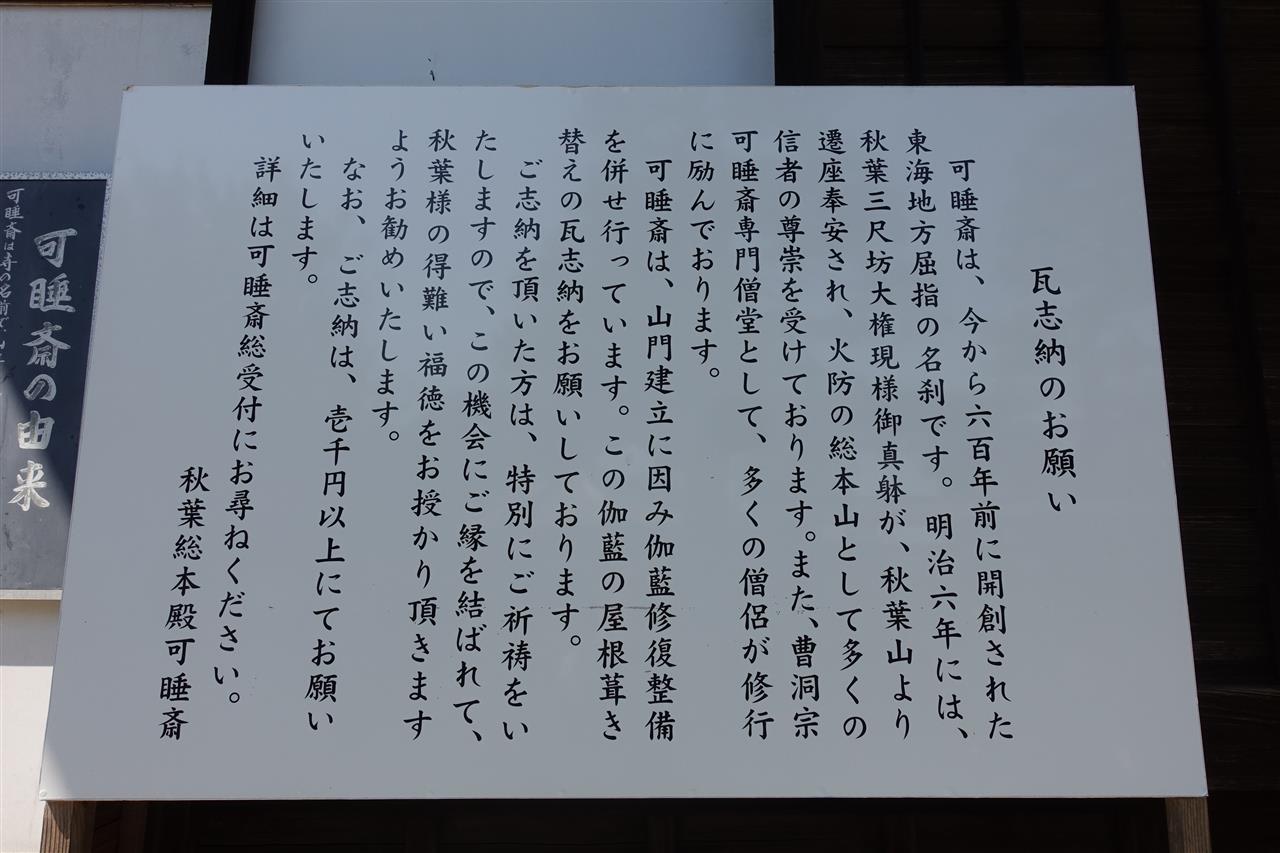 瓦志納のお願い
可睡斎は、今から六百年前に開創された
東海地方屈指の名刹です。明治六年には、
秋葉三尺坊大権現様御真躰が、秋葉山より
遷座奉安され、火防の総本山として多くの
信者の尊崇を受けております。また、曹洞宗
可睡斎専門僧堂として、多くの僧侶が修行
に励んでおります。
可睡斎は、山門建立に因み伽藍修復整備
を併せ行っています。この伽藍の屋根葺き
替えの瓦志納をお願いしております。
ご志納を頂いた方は、特別にご祈祷をい
たしますので、この機会にご縁を結ばれて、
秋葉様の得難い福徳をお授かり頂きます
ようお勧めいたします。
なお、ご志納は、壱千円以上にてお願い
いたします。
詳細は可睡斎総受付にお尋ねください。
秋葉総本殿可睡斎
可睡斎の由来
可睡斎は寺の名前で